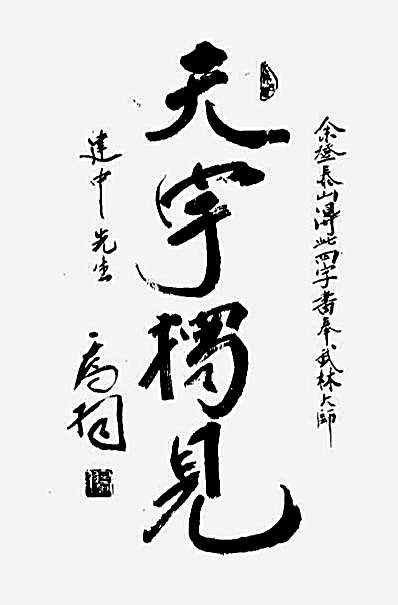 余登泰山得此四字書奉武林大師
天宇獨見
建中先生